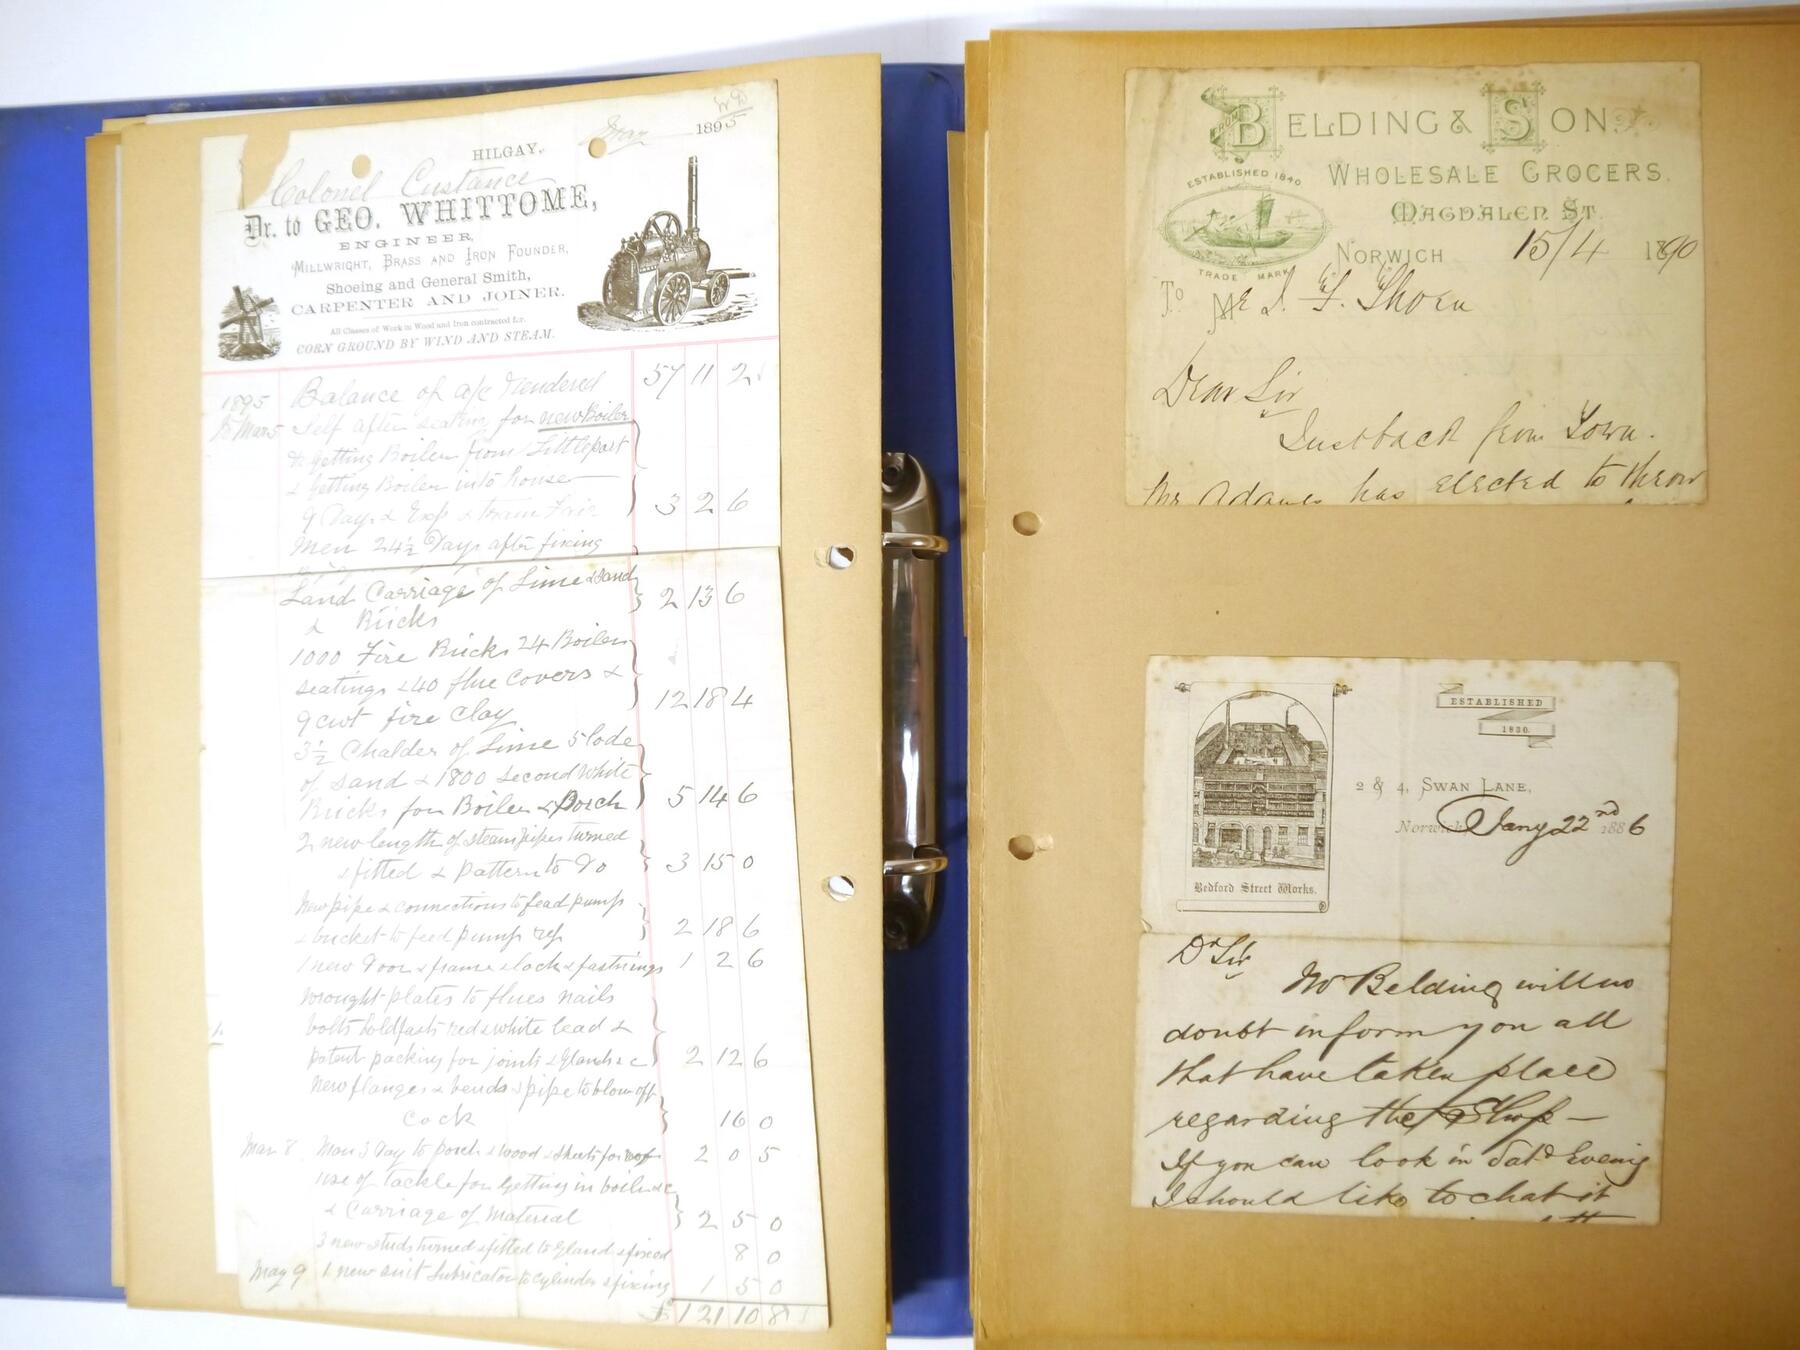 HILGAY,
May 1895
Colonel Custance
Dr. to GEO. WHITTOME,
ENGINEER,
MILLWRIGHT, BRASS AND IRON FOUNDER,
Shoeing and General Smith,
CARPENTER AND JOINER.
All Classes of Work in Wood and Iron contracted for.
CORN GROUND BY WIND AND STEAM.
1895 Balance of a/c rendered 57 11 2
Mar 5 Self after seating for new Boiler
& getting Boiler from Littleport
& getting Boiler into house
9 Days & Exp & train Fair 3 2 6
Men 24½ Days after fixing
Land Carriage of Lime & sand 2 13 6
& Bricks
1000 Fire Bricks 24 Boiler
seatings & 40 flue covers &
9 cwt fire clay 12 18 4
3½ Chalder of Lime 5 lode
of sand & 1800 second white
Bricks for Boiler & Porch 5 14 6
2 new length of steam pipes turned
& fitted & pattern to Do 3 15 0
New pipe & connections to fead pump
& bucket to feed pump rep 2 18 6
1 new Door & frame & lock & fastnings 1 2 6
Wrought plates to flues nails
bolts holdfasts red & white lead &
patent packing for joints & Glands &c 2 12 6
New flanges & bends & pipe to blow off
cock 16 0
Mar 8 Man 3 Day to porch & wood & skirts for roof 2 0 5
use of tackle for getting in boiler &c
& Carriage of Material 2 5 0
3 new studs turned & fitted to Gland & fixed 8 0
May 9 1 new suit Lubricator to cylinder & fixing 1 5 0
£ 121 10 8
FROM
BELDING & SON.
WHOLESALE GROCERS.
ESTABLISHED 1840
MAGDALEN ST.
NORWICH 15/4 1890
TRADE MARK
To Mr J. F. Thorn
Dear Sir
Just back from Town.
Mr Adams has elected to throw
ESTABLISHED
1830.
2 & 4, SWAN LANE,
Norwich Jany 22nd 1886
Bedford Street Works.
Dr Sir
Mr Belding will no
doubt inform you all
that have taken place
regarding the Shop —
If you can look in Satd Evening
I should like to chat it